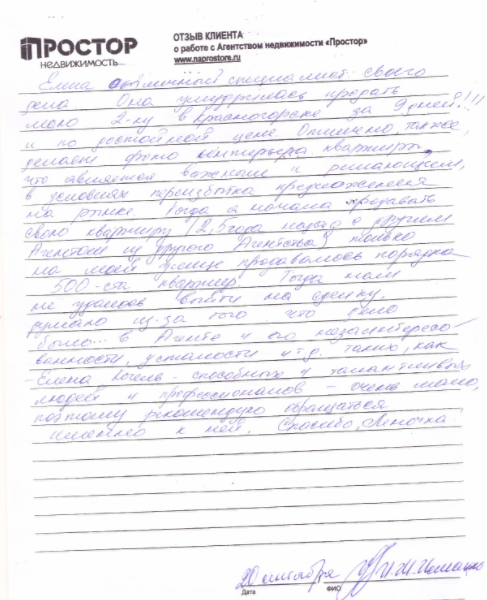 ПРОСТОР
НЕДВИЖИМОСТЬ
ОТЗЫВ КЛИЕНТА
о работе с Агентством недвижимости «Простор»
www.naprostore.ru
Елена отличный специалист своего
дела. Она умудрилась продать
мою 2-ку в Красногорске за 9 дней!!!
и по достойной цене. Отлично, также,
делает фото интерьера квартиры,
что является важным и решающим,
в условиях переизбытка предложения
на рынке. Когда я начала продавать
свою квартиру 2,5 года назад с другим
Агентом из другого Агентства, только
на моей улице продавалось порядка
500-ста квартир. Тогда мы
не удалось выйти на сделку,
думаю из-за того что дело
было... в Агенте и его незаинтересо-
ванности, усталости и т.д. таких, как
Елена Кочель - способных и талантливых
людей и профессионалов - очень мало,
поэтому рекомендую обращаться
именно к ней. Спасибо, Леночка
20 сентября
Дата
ФИО